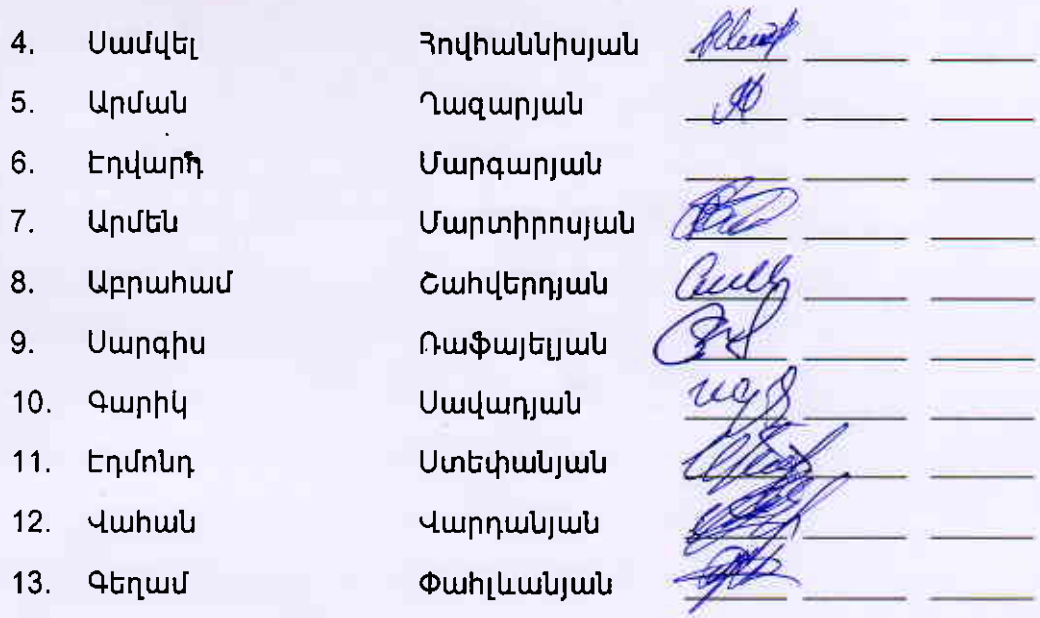 4. Սամվել Հովհաննիսյան
5. Արման Ղազարյան
6. Էդվարդ Մարգարյան
7. Արմեն Մարտիրոսյան
8. Աբրահամ Շահվերդյան
9. Սարգիս Ռաֆայելյան
10. Գարիկ Սավադյան
11. Էդմոնդ Ստեփանյան
12. Վահան Վարդանյան
13. Գեղամ Փահլևանյան